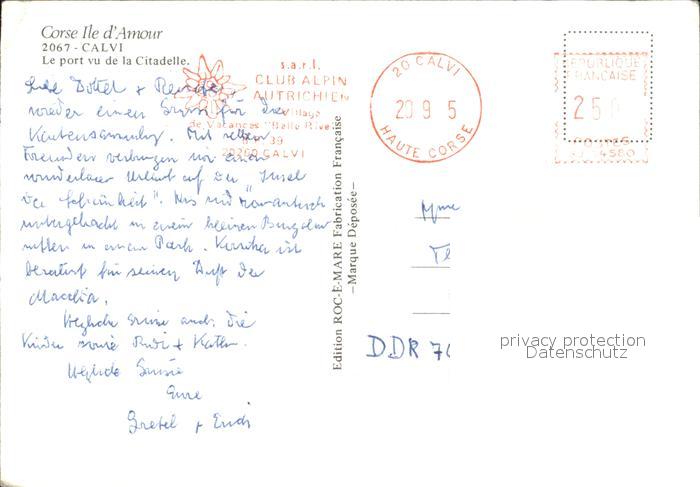 Corse Ile d'Amour
2067 - CALVI
Le port vu de la Citadelle.
s.a.r.l.
CLUB ALPIN
AUTRICHIEN
Village
de Vacances "Balle Rive"
39
20260 CALVI
20 CALVI
20 9 5
HAUTE CORSE
REPUBLIQUE
FRANCAISE
250
POSTES
4580
Liebe Dottel + Reiner,
wieder einen Gruss für die
Kartensammlung. Mit netten
Freunden verbringen wir einen
wunderbaren Urlaub auf der "Insel
der Schönheit". Wir sind romantisch
untergebracht in einem kleinen Bungalow
mitten in einem Park. Korsika ist
berühmt für seinen Duft der
Macchia.
Herzliche Grüsse auch die
Kinder sowie + Kathr.
Herzliche Grüsse
Eure
Gretel + Erich
Edition ROC-E-MARE Fabrication Française
—Marque Déposée—
Mme
Te
DDR 70
privacy protection
Datenschutz